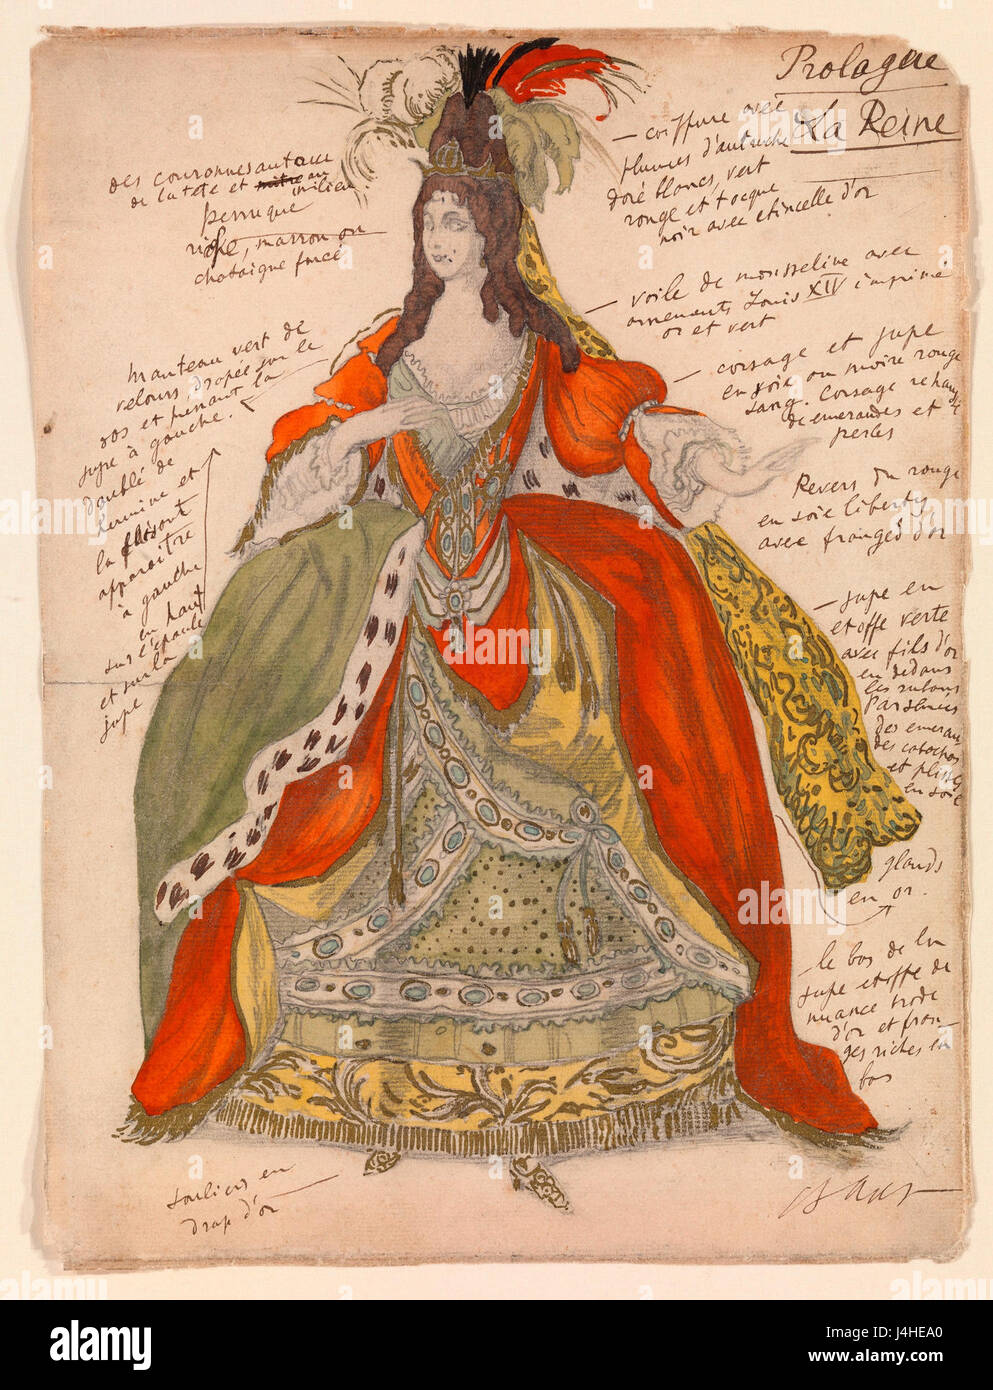 Prologue
La Reine
– coiffure avec
plumes d'autruche
doré blancs, vert
rouge et tocque
noir avec etincelle d'or
– voile de mousseline avec
ornements Louis XIV imprimé
or et vert
– corsage et jupe
en soie ou moire rouge
sang. Corsage rehaussé
d'emeraudes et
perles
Revers du rouge
en soie liberty
avec franges d'or
– jupe en
etoffe verte
avec fils d'or
en dedans
les rubans
des emerau-
des
et
en soie
glands
en or.
– le bas de la
jupe etoffe de
nuance
d'or et fran-
ges riches en
bas
des couronnes autour
de la tete et au
milieu
perruque
riche, marron ou
chataigne foncé
manteau vert de
velours drapée sur le
dos et prenant la
jupe à gauche.
doublé de
hermine et
la faisant
apparaitre
à gauche
en haut
sur l'epaule
et sur la
jupe
souliers en
drap d'or
Bakst
alamy
Image ID: J4HEA0
www.alamy.com